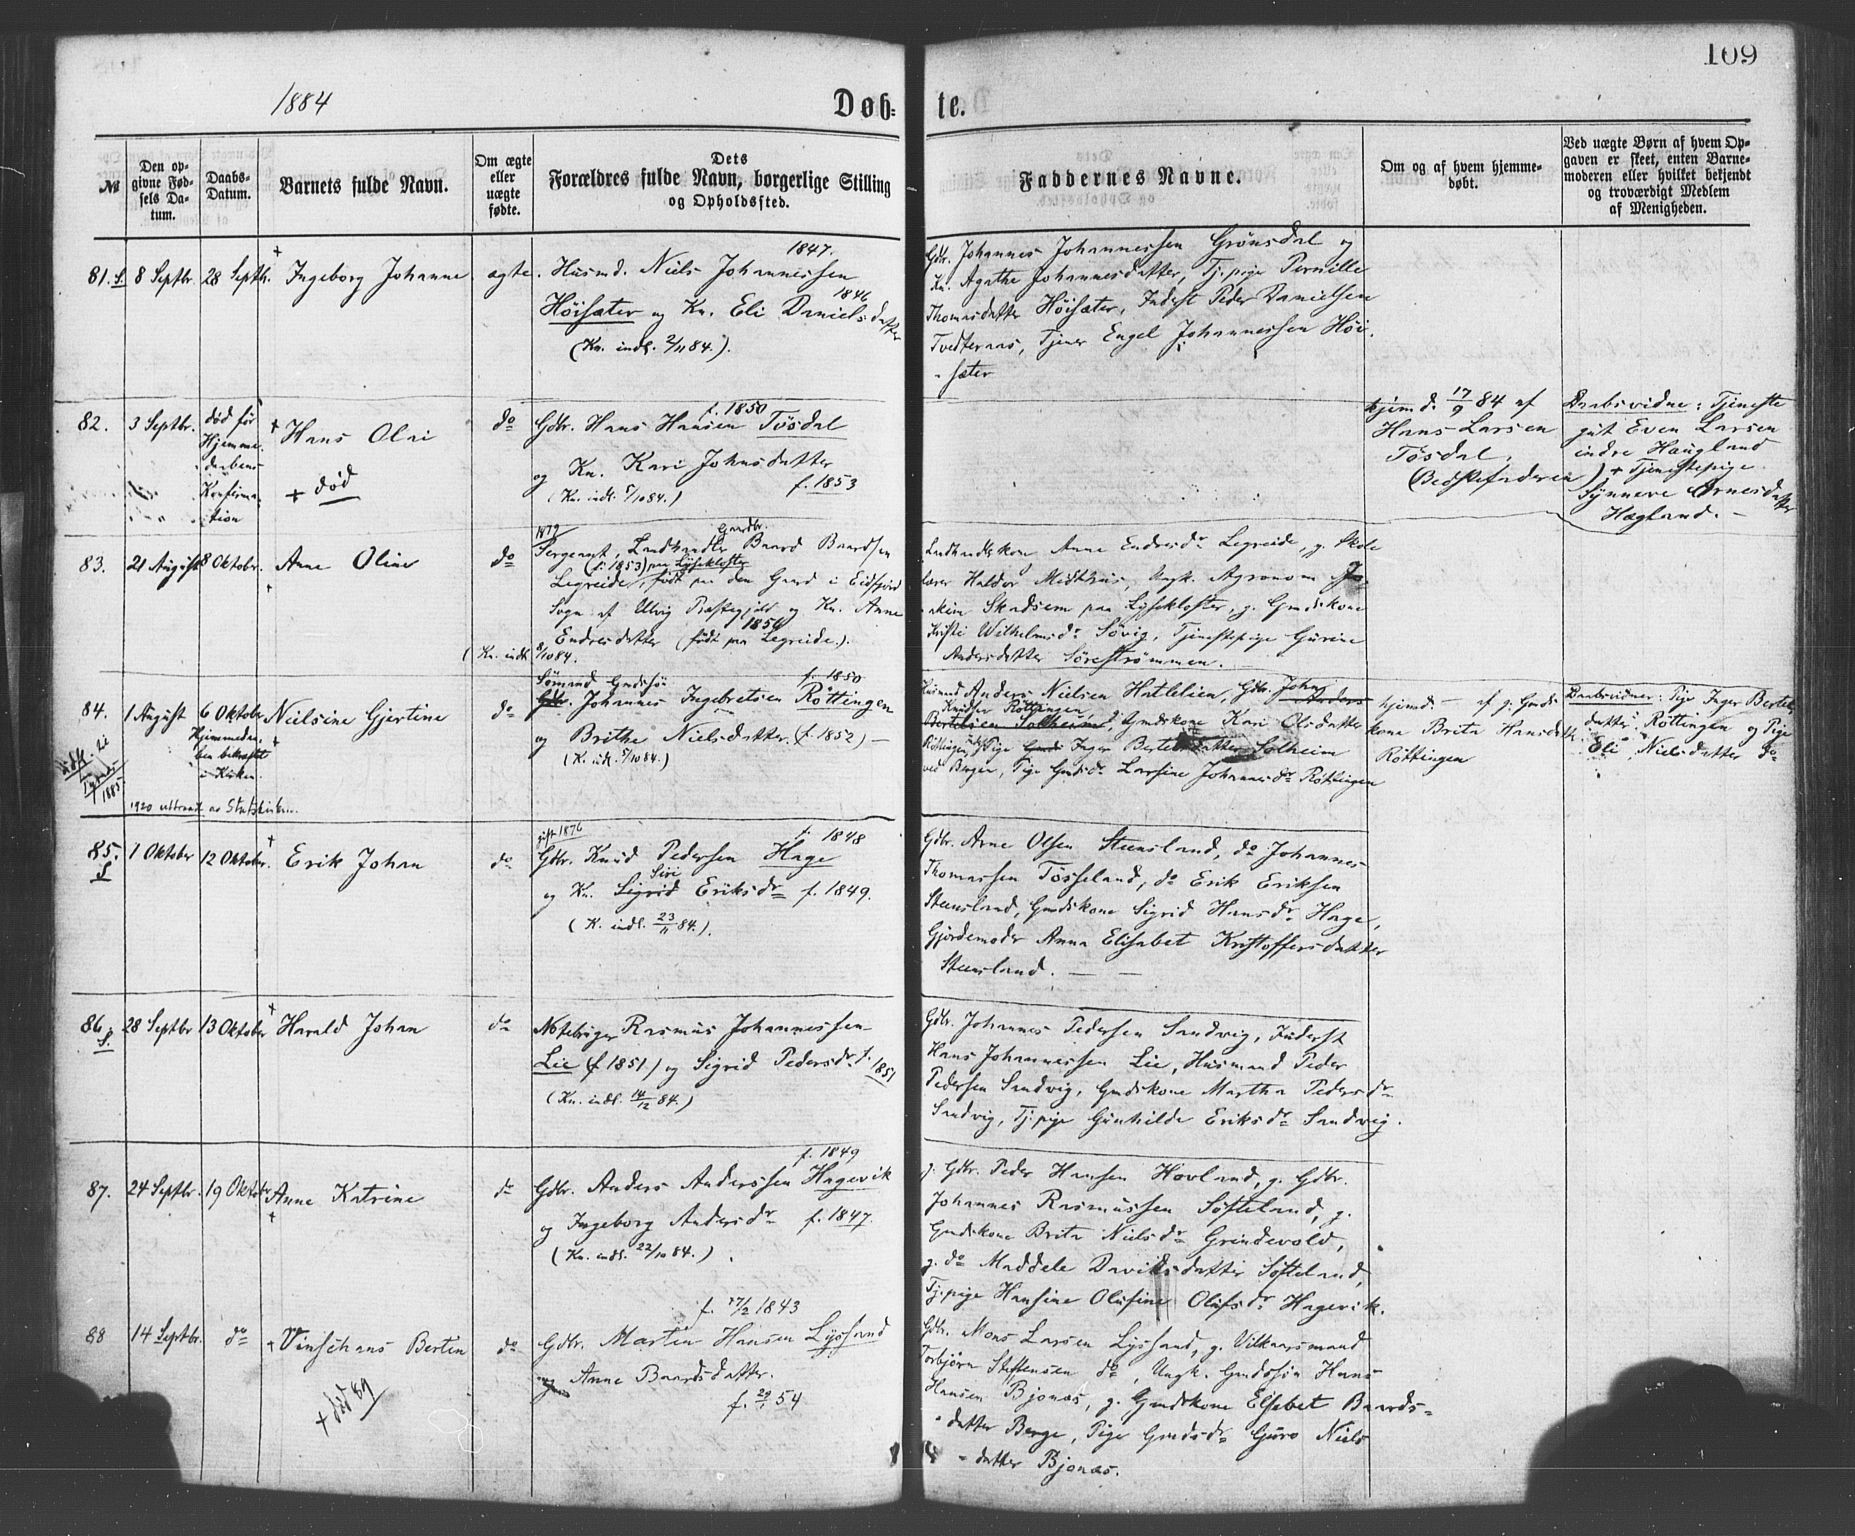 109
1884
Døb- te.
№
Den op-
givne Fød-
sels Da-
tum.
Daabs-
Datum.
Barnets fulde Navn.
Om ægte
eller
uægte
fødte.
Dets
Forældres fulde Navn, borgerlige Stilling
og Opholdssted.
Faddernes Navne.
Om og af hvem hjemme-
døbt.
Ved uægte Børn af hvem Op-
gaven er skeet, enten Barne-
moderen eller hvilket bekjendt
og troværdigt Medlem
af Menigheden.
81. S. 8 Septbr. 28 Septb. + Ingeborg Johanne ægte.
1847.
Husmd. Niels Johannessen
1846
Höisæter og Kn. Eli Daniels datter
(Kn. indl. 2/11 84.).
Gbr. Johannes Johannessen Grönsdal og
Kn. Agathe Johannesdatter, Tj.pige Pernille
Thomasdatter Höisæter, Inderst Peder Danielsen
Tvedteraas, Tjener Engel Johannessen Höi-
- sæter
82. 3 Septbr.
død før
Hjemme-
daabens
Konfirma-
tion
+ Hans Olai
+ død
do
f. 1850
Gbr. Hans Hansen Tösdal
og Kn. Kari Johnsdatter
f. 1853
(Kn. indl. 5/10 84.)
hjemd. 17/9 84 af
Hans Larsen
Tösdal.
(Bedstefaderen)
Daabsvidne: Tjeneste
gut Even Larsen
indre Haugland
+ Tjenestepige
Synneve Arnesdatter
Hagland. -
83. 21 August 8 Oktober. Anne Oline + do
1879 Gaardbr.
Sergeant, Landhandler Baard Baardsen
(f. 1853) paa Lysekloster
Legreide, født paa den Gaard i Eidfjord
Sogn af Ulvig Præstegjeld og Kn. Anne
1850
Endresdatter (født paa Legreide.).
(Kn. indl. 8/10 84.
Landhandlskone Anne Endresdr Legreide, g. Skole
lærer Haldor Midthus, Ungk. Agronom Jo-
-akim Skadsem paa Lysekloster, g. Gmdskone
Kristi Wilhelmsdr Sövig, Tjenestepige Gurine
Andersdatter Sörestrømmen.
84. 1 August 6 Oktober
Hjemmedaa-
ben bekræftet
i Kirken.
Nielsine Gjertine do
1885
1920 udtraadt av Statskirken...
Sømand Gmdssön f. 1850
Gbr. Johannes Ingebretsen Röttingen
og Brithe Nielsdatter. (f. 1852) -
(K. indl. 5/10 84.)
Husmd Anders Nielsen Hatlelien, Gbr. John Anders
Knudsen Röttingen
Bertelsen Solheim, g. Gmdskone Kari Olsdatter
Röttingen, Pige Inger Bertelsdatter Solheim
ved Bergen, Pige Gmdsdr Larsine Johannesdr Röttingen
hjemd. - af g. Gmds-
kone Brita Hansdtr
Röttingen
Daabsvidner: Pige Inger Bertels
datter Röttingen og Pige
Eli Nielsdatter do
85. S 1 Oktober 12 Oktober. + Erik Johan do
gift 1876 f. 1848
Gbr. Knud Pedersen Hage
Siri
og Kn. Sigrid Eriksdr f. 1849.
(K. indl. 23/11 84.).
Gbr. Arne Olsen Steensland, do Johannes
Thomassen Tösseland, do Erik Eriksen
Steensland, Gmdskone Sigrid Hansdr Hage,
Gjordemoder Anna Elisabet Kristoffersdatter
Steensland. - -
86. S. 28 Septbr 13 Oktober + Harald Johan do
Notebøger Rasmus Johannessen
Lie (f 1851.) og Sigrid Pedersdr f. 1851
(Kn. indl. 14/12 84.)
Gbr. Johannes Pedersen Sandvig, Inderst
Hans Johannessen Lie, Husmand Peder
Pedersen Sandvig, Gmdskone Martha Pedersdr
Sandvig, Tj.pige Gunhilde Eriksdr Sandvig.
87. 24 Septbr. 19 Oktober Anne Katrine + do
f. 1849
Gbr. Anders Anderssen Hagevik
og Ingeborg Andersdr f. 1847.
(Kn. indl. 22/10 84.)
g. Gbr. Peder Hansen Hovland, g. Gbr.
Johannes Rasmussen Söfteland, g.
Gmdskone Brita Nielsdr Grindevold,
g. do Maddele Davidsdatter Söfteland,
Tj.pige Hansine Olufine Olufsdr Hagevik.
88 14 Septbr. do + Vinsehans Bertin do
+ död 89
f. 17/2 1843
Gbr. Marten Hansen Lyssand
og Anne Baardsdatter.
f. 29/1 54
Gbr. Mons Larsen Lyssand, g. Vilkaarsmand
Torbjörn Steffensen do, Ungk. Gmdssön Hans
Hansen Bjonæs, g. Gmdskone Elsebet Baards-
- datter Berge, Pige Gmdsdr Guro Niels
- datter Bjonæs.